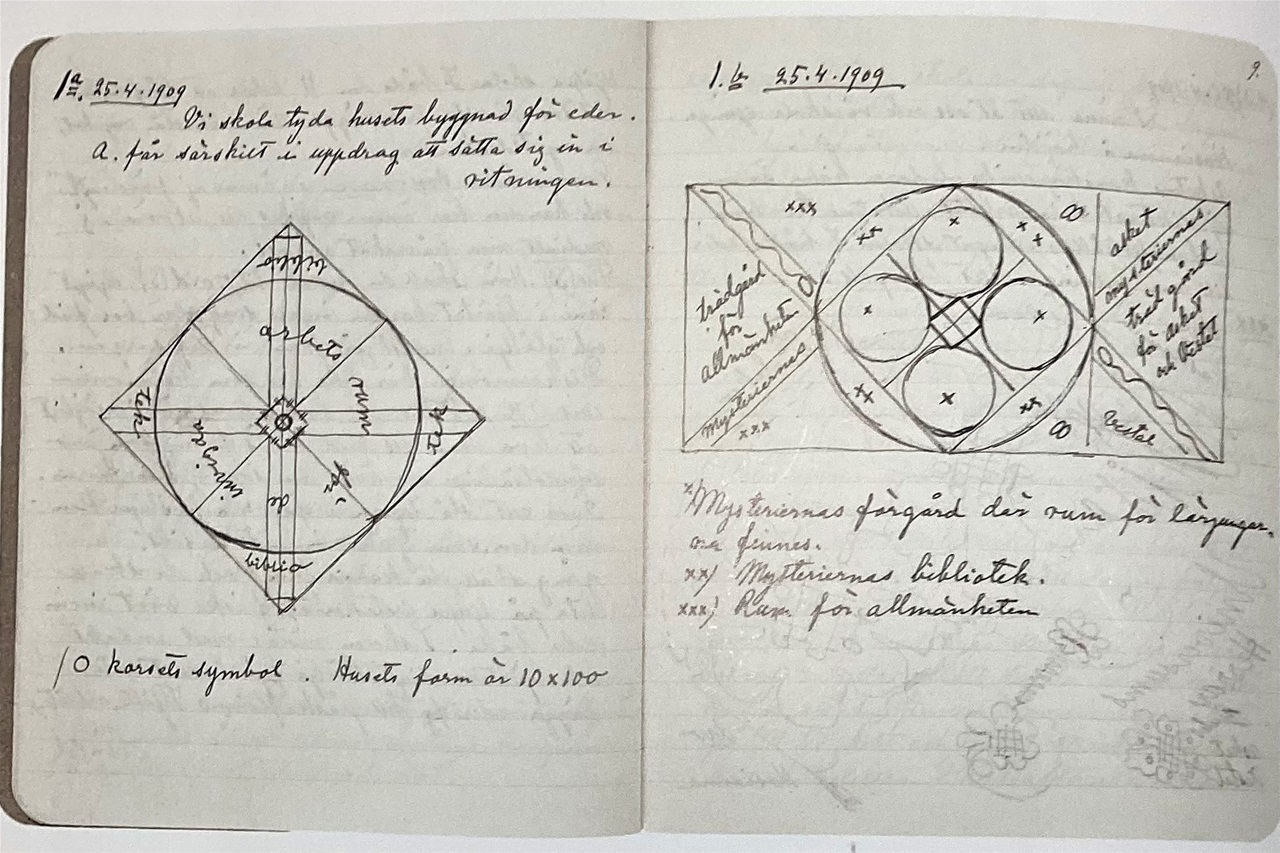 1a. 25.4.1909
Vi skola tyda husets byggnad för eder.
A. får särskilt i uppdrag att sätta sig in i
ritningen.
biblio
arbets
rum
tek
tek
invigda
för
de
biblio
/O korsets symbol. Husets form är 10x100
1.b 25.4.1909
9.
xxx
xx
x
xx
8
asket
mysteriernas
trädgård
för
allmänheten
x
x
trädgård
för asket
och Vestal
mysteriernas
xxx
xx
x
xx
8
Vestal
x/ Mysteriernas förgård där rum för lärjungar-
na finnes.
xx/ Mysteriernas bibliotek.
xxx/ Rum för allmänheten